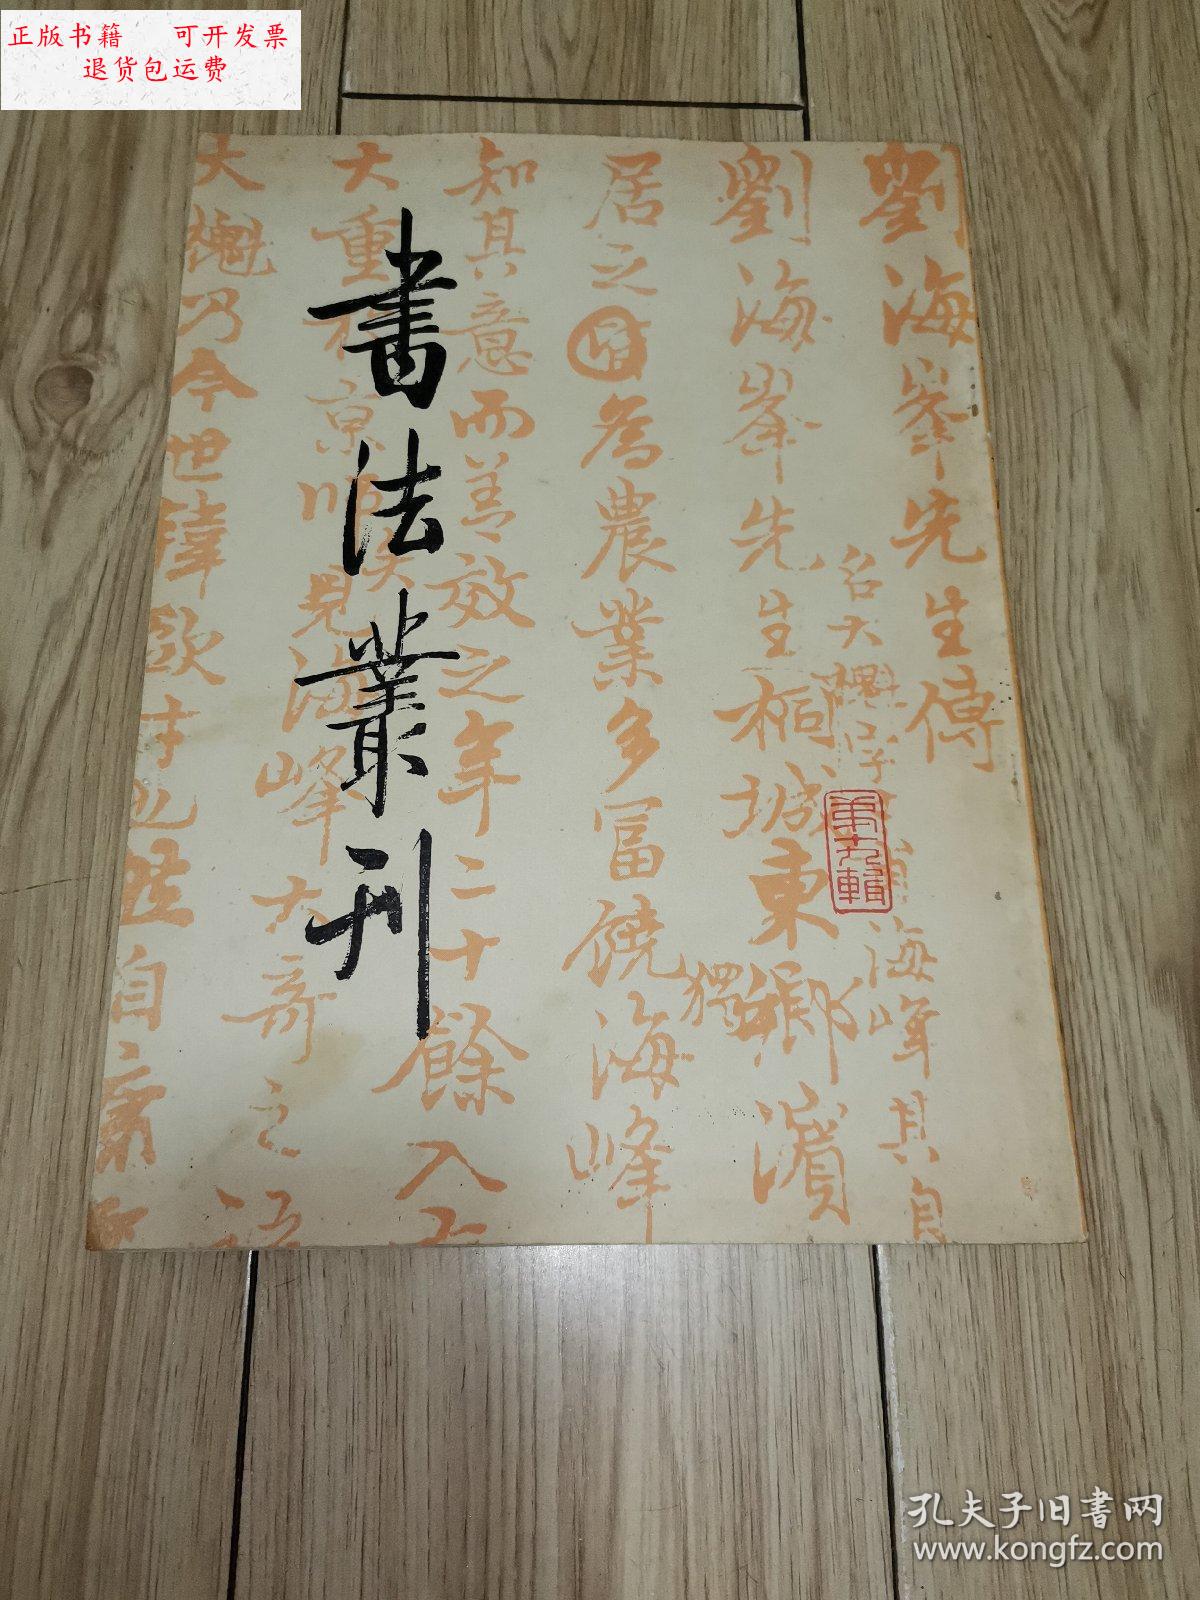 正版书籍 可开发票
退货包运费
書法叢刊
第九輯
劉海峯先生傳
名大櫆字
海峰其自
劉海峯先生桐城東鄉濱
獨
居之
為農業多冨饒海峰
知其意而善效之年二十餘入
大重
京師
見海峰大哥之
大櫆乃今世韓歐才也
自
孔夫子旧书网
www.kongfz.com